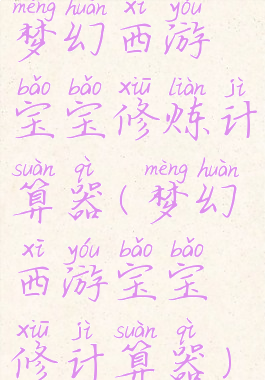 mèng huàn xī yóu
梦幻西游
bǎo bǎo xiū liàn jì
宝宝修炼计
suàn qì mèng huàn
算器(梦幻
xī yóu bǎo bǎo
西游宝宝
xiū jì suàn qì
修计算器)